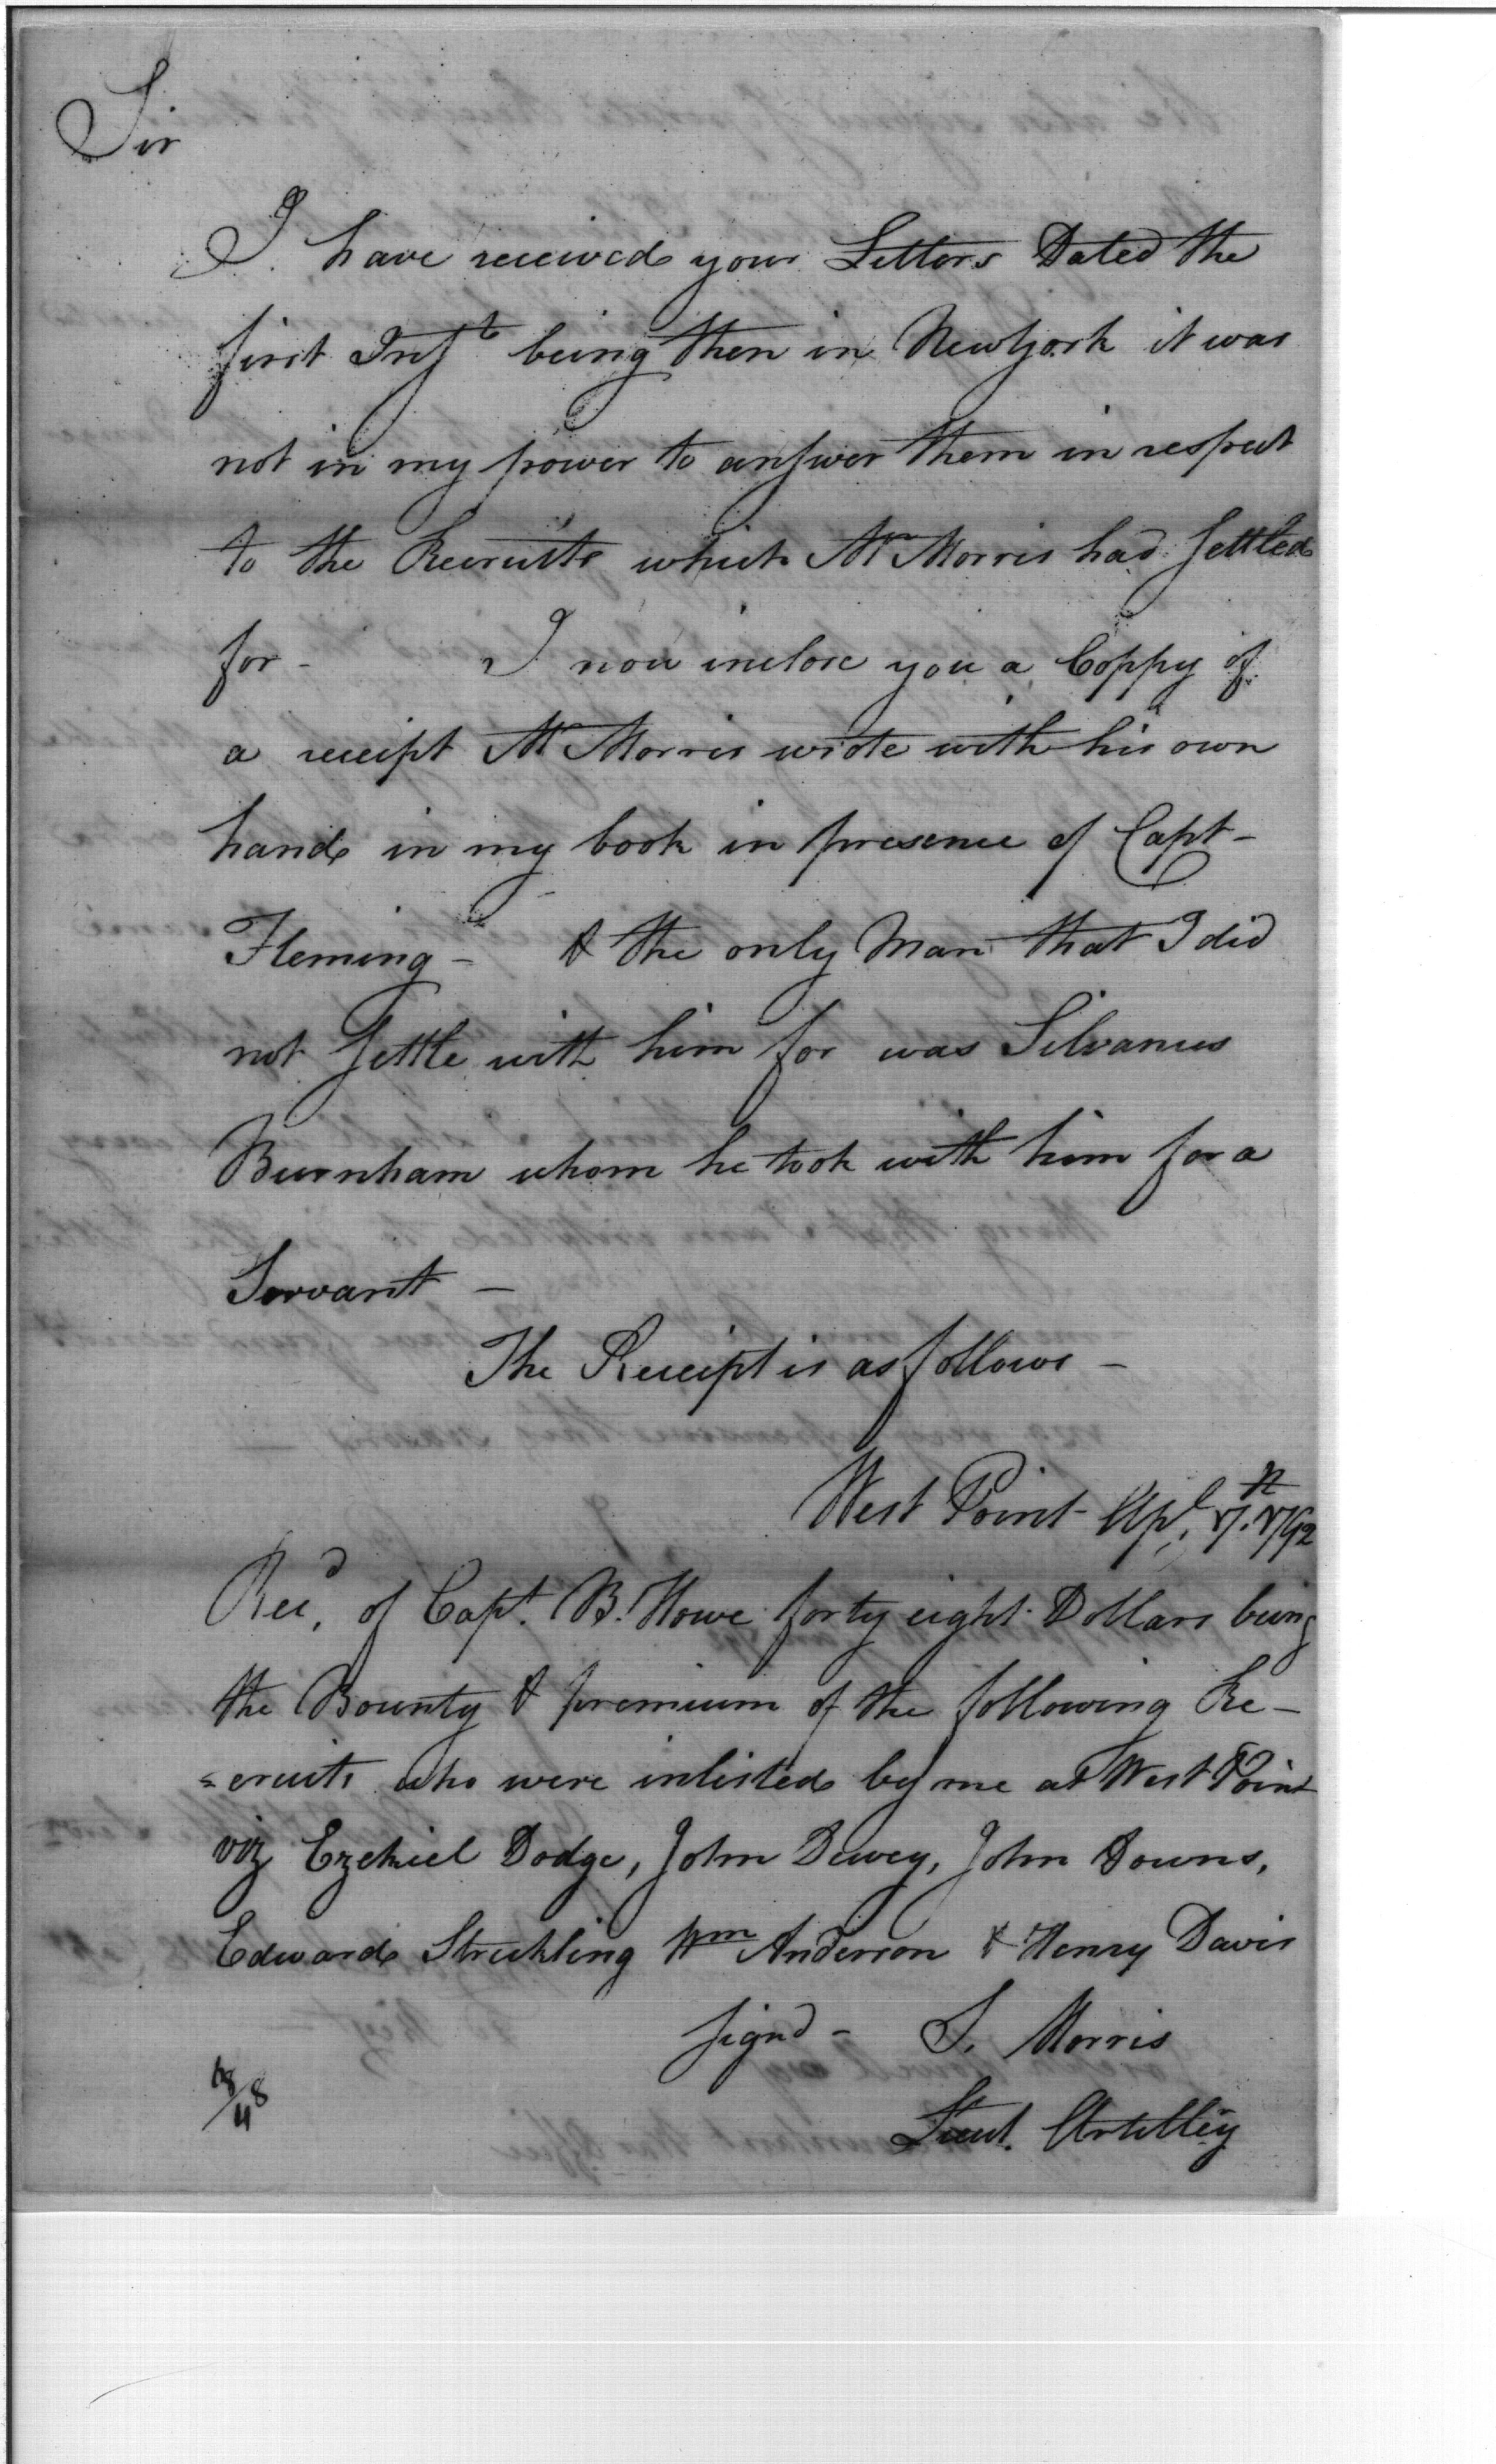 Sir
I have received your Letters Dated the
first Inst being then in Newyork it was
not in my power to answer them in respect
to the Recruits which Mr Morris had settled
for - I now inclose you a Coppy of
a receipt Mr Morris wrote with his own
hand in my book in presence of Capt -
Fleming - & the only Man that I did
not settle with him for was Silvanus
Burnham whom he took with him for a
Servant -
The Receipt is as follows -
West Point Apl. 7th 1792
Recd. of Capt. B. Howe forty eight Dollars being
the Bounty & premium of the following Re-
=cruits who were inlisted by me at West Point
viz Ezekiel Dodge, John Dewey, John Downs,
Edward Strickling Wm Anderson & Henry Davis
signd - S. Morris
Lieut. Artilley